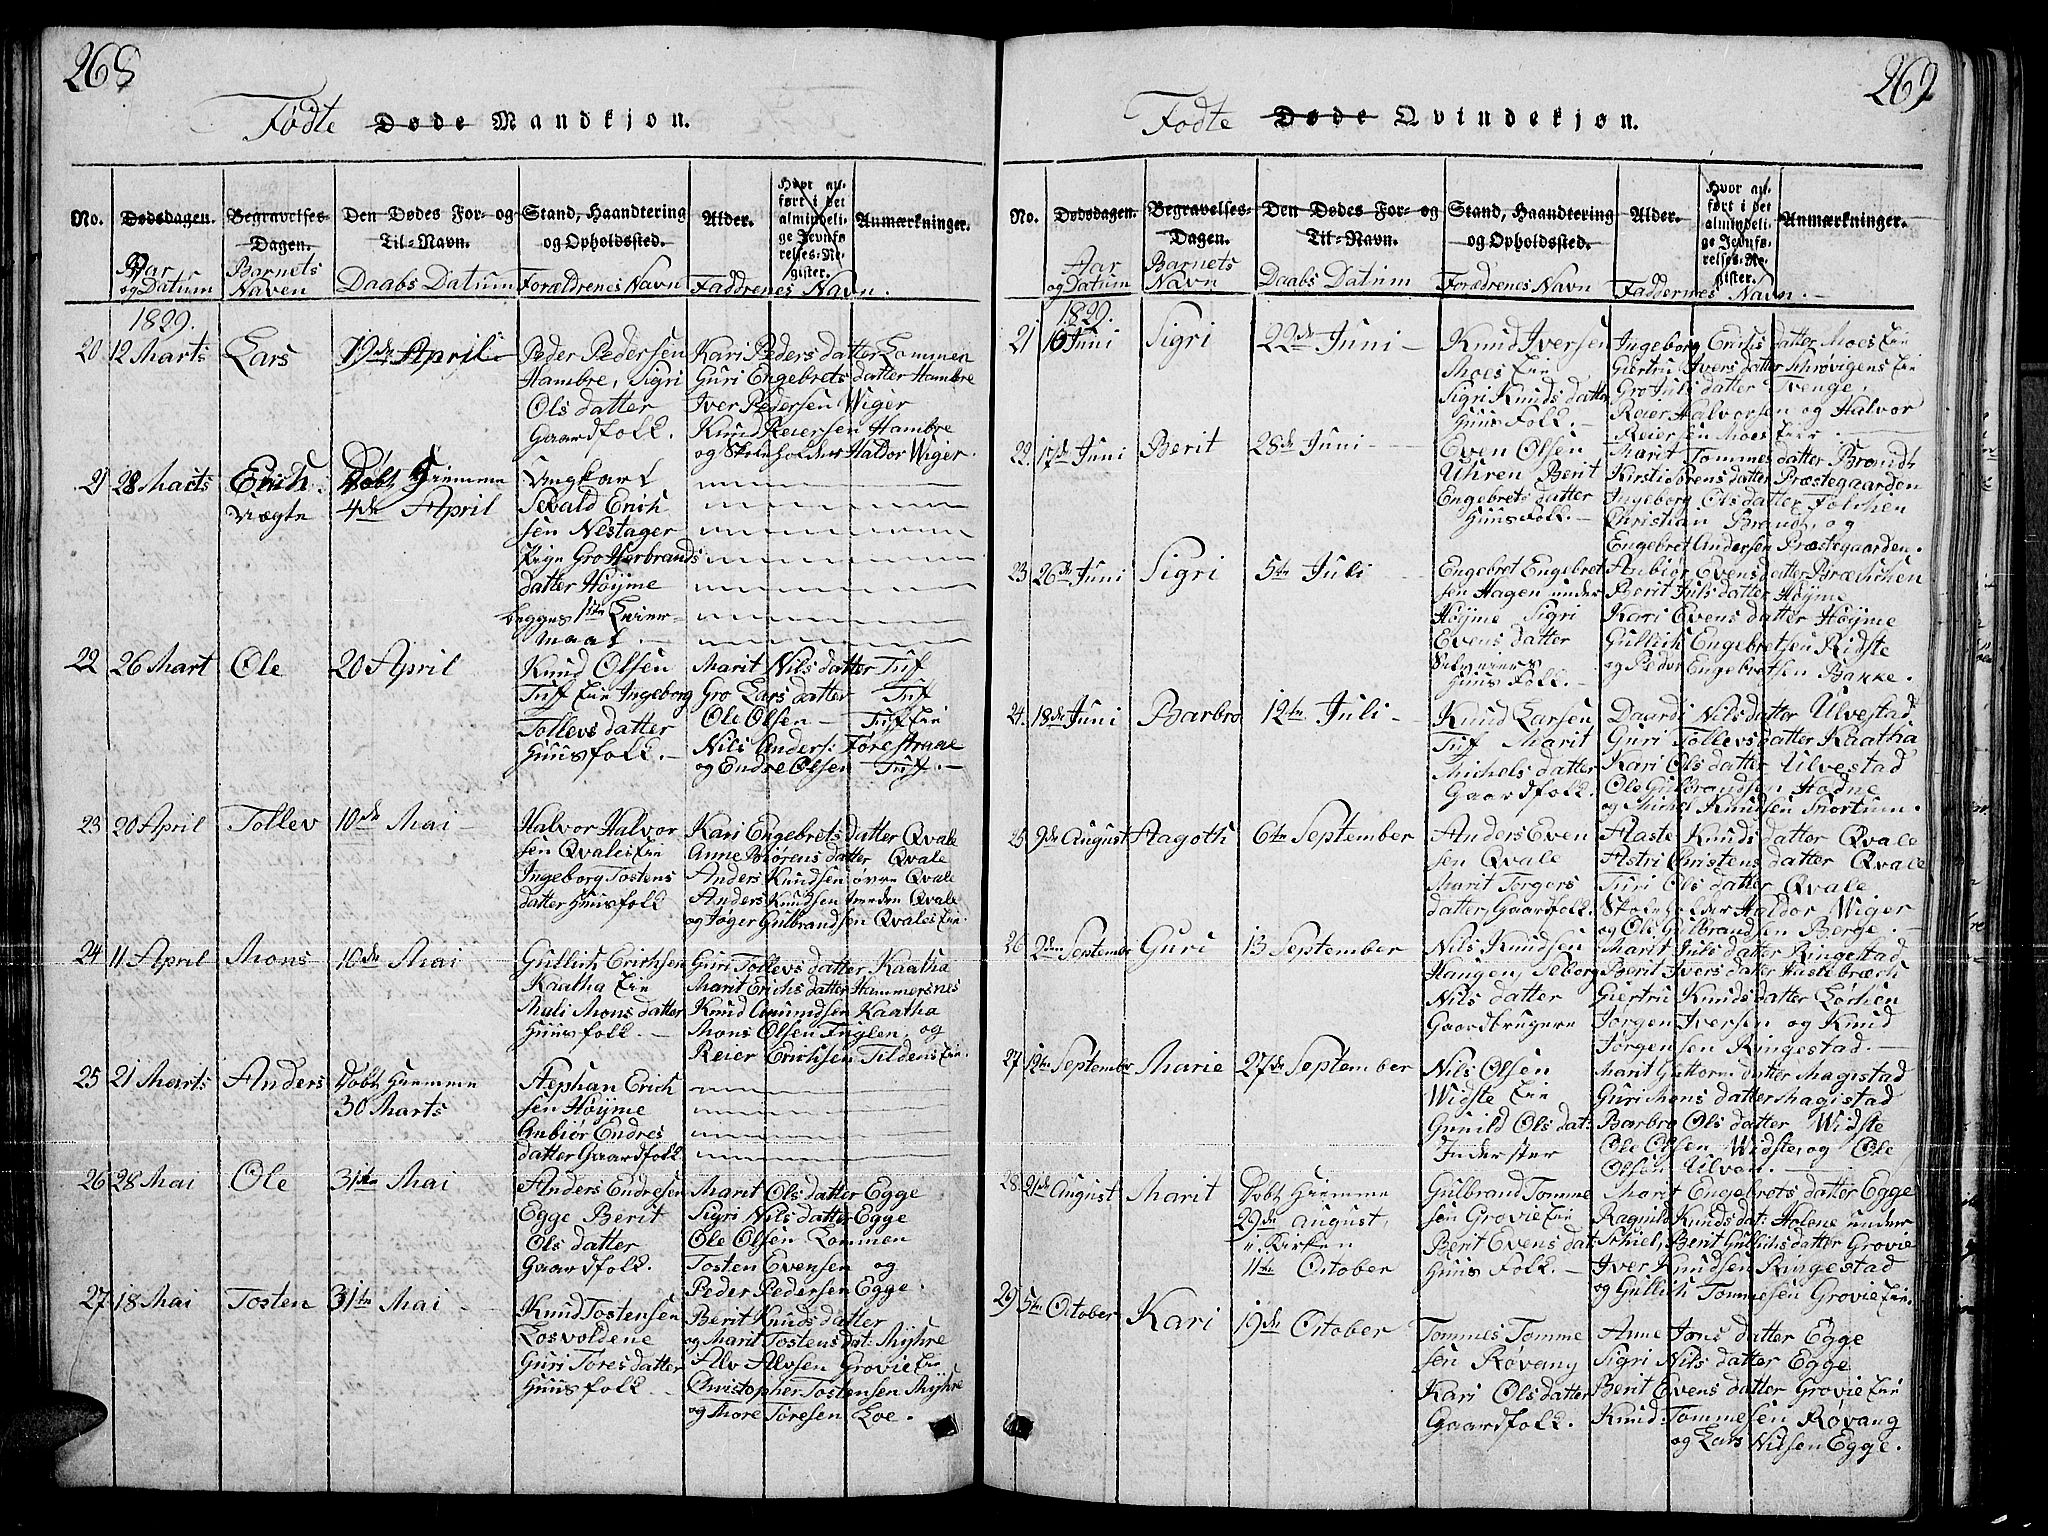 268
Fødte Døde Mandkjøn.
No. Dødsdagen. Begravelses-Dagen. Den Dødes For- og Til-Navn. Stand, Haandtering og Opholdssted. Alder. Hvor anført i det almindelige Jevnførelses-Register. Anmærkninger.
Aar og Datum Barnets Navn Daabs Datum Forældrenes Navn Faddrenes Navn.
1829.
20 12 Marts Lars 19de April Peder Pedersen Kari Peders datter Lommen
Hambre, Sigri Guri Engebrets datter Hambre
Ols datter Iver Pedersen Wiger
Gaardfolk. Knud Reiersen Hambre
og Skoleholder Haldor Wiger.
21 28 Marts Erich Døbt Hiemme Ungkarl
uægte 4de April Sevald Erich
sen Nestager
Pige Gro Herbrands
datter Høyme
begges 1ste Leier-
maal.
22 26 Mart Ole 20 April Knud Olsen Marit Nils datter Tuf
Tuf Eie Ingeborg Gro Lars datter Tuf
Tollevs datter Ole Olsen Tuf Eie
Huusfolk. Nils Anders: Førestrane
og Endre Olsen Tuf.
23 20 April Tollev 10de Mai Halvor Halvor Kari Engebrets datter Qvale
sen Qvales Eie Anne Biørens datter Qvale
Ingeborg Tostens Anders Knudsen øvre Qvale
datter Huusfolk Anders Knudsen needen Qvale
og Jøger Gulbrandsen Qvales Eie.
24 11 April Mons 10de Mai Gullich Erichsen Guri Tollevs datter Kaatha
Kaatha Eie Marit Erichs datter Hammersnes
Mali Mons datter Knud Amundsen Kaatha
Huusfolk Mons Olsen Fuglen, og
Reier Erichsen Tildens Eie.
25 21 Marts Anders Døbt Hiemme Stephan Erich
30 Marts sen Høyme
Anbiør Endres
datter Gaardfolk
26 28 Mai Ole 31te Mai Anders Endresen Marit Ols datter Egge
Egge Berit Sigri Nils datter Egge
Ols datter Ole Olsen Lommen
Gaardfolk. Tosten Evensen og
Peder Pedersen Egge.
27 18 Mai Tosten 31te Mai Knud Tostensen Berit Knuds datter
Losvoldene og Marit Tostens dat: Myhre
Guri Tores datter Alv Alvsen Grovie Eie
Huusfolk. Christopher Tostensen Myhre
og Thore Toresen Loe.
269
Fødte Døde Qvindekjøn.
No. Dødsdagen. Begravelses-Dagen. Den Dødes For- og Til-Navn. Stand, Haandtering og Opholdssted. Alder. Hvor anført i det almindelige Jevnførelses-Register. Anmærkninger.
Aar og Datum Barnets Navn Daabs Datum Forældrenes Navn Faddernes Navn.
1829.
21 16 Juni Sigri 22de Juni Knud Iversen Ingeborg Erichs datter Moes Eie
Moes Eie Giertru Ivers datter Schrøvigens Eie
Sigri Knuds datter Gro Juls datter Svenge,
Huus Folk. Reier Halvorsen og Halvor
Reiersen Moes Eie.
22 17de Juni Berit 28de Juni Even Olsen Marit Tommes datter Brandt
Uhren Berit Kirsti Sørens datter Præstegaarden
Engebrets datter Ingeborg Ols datter Folchen
Huus Folk. Christian Brandt, og
Engebret Andersen Præstegaarden.
23 26de Juni Sigri 5te Juli Engebret Engebret Anbiør Evens datter Bræchchen
sen Hagen under Berit Juls datter Høyme
Høyme Sigri Kari Evens datter Høyme
Evens datter Gullich Engebretsen Ridste
Selveiers og Peder Engebretsen Bakke.
Huus Folk.
24 18de Juni Barbro 12te Juli Knud Larsen Daardi Nilsdatter Ulvestad
Tuf Marit Guri Tollevs datter Kaatha
Michels datter Kari Ols datter Ulvestad
Gaardfolk. Ole Gulbrandsen Hadne
og Michel Knudsen Mortum.
25 9de August Aagoth 6te September Anders Even Aaste Knuds datter Qvale
sen Qvale Astri Christens datter Qvale
Marit Torgers Turi Ols datter Qvale
datter, Gaardfolk. Skoleholder Haldor Wiger
og Ole Gulbrandsen Berge.
26 2den September Guri 13 September Nils Knudsen Marit Juls datter Ringestad
Haugen, Seborg Berit Ivers datter Huslebræch
Nils datter Giertru Knuds datter Lørhen
Gaardbrugere Jørgen Iversen og Knud
Jørgensen Ringestad.
27 12te September Marie 27de September Nils Olsen Marit Guttorms datter Magistad
Widste Eie Guri Mons datter Magistad
Gunild Ols dat: Barbro Ols datter Widste
Inderster Ole Olsen Widste, og Ole
Olsen Ulven.
28 21de August Marit Døbt Hiemme Gulbrand Tomme Marit Engebrets datter Egge
29de august, sen Grovie Eie Ragnild Knuds dat: Holene under
i Kirken Berit Evens dat: Schiel, Berit Gullichs datter Grovie
11te October Huus Folk. Iver Knudsen Ringestad
og Gullich Tommesen Grovie Eie.
29 5te October Kari 19de October Tommes Tomme Anne Jons datter Egge
sen Røvang Sigri Nils datter Egge
Kari Ols datter Berit Evens datter Grovie Eie
Gaardfolk. Knud Tommesen Røvang
og Lars Nilsen Egge.